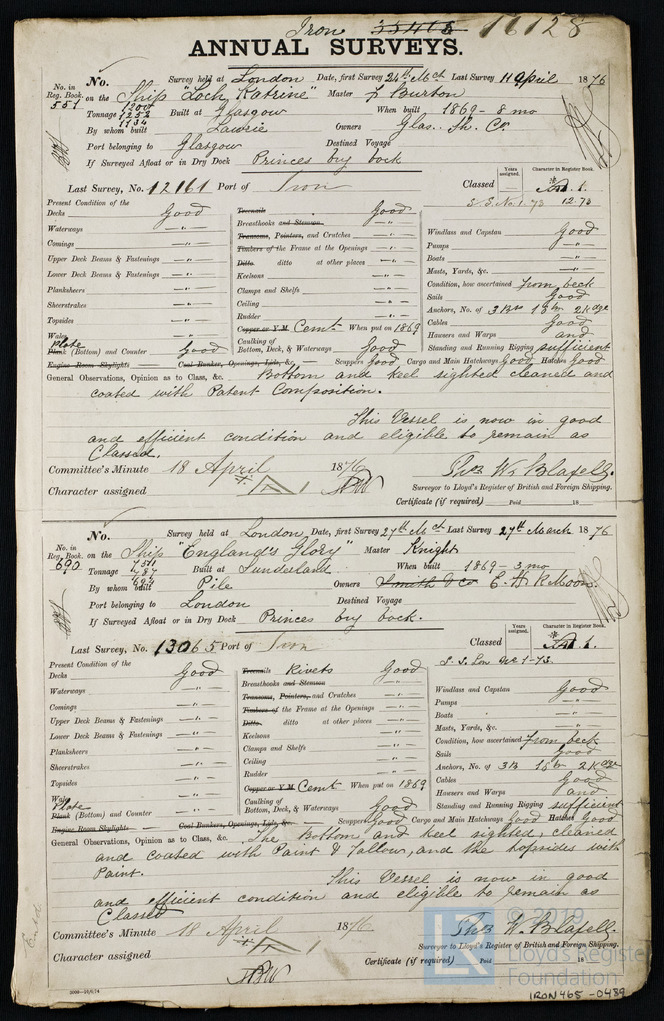 Iron 16128
ANNUAL SURVEYS.
No. Survey held at London Date, first Survey 24th Mct Last Survey 11 April 1876
No. in Reg. Book. 551 on the Ship "Loch Katrine" Master Burton
Tonnage 1200 1252 1134 Built at Glasgow When built 1869 - 8 mo
By whom built Lawrie Owners Glas. Sh. Co
Port belonging to Glasgow Destined Voyage
If Surveyed Afloat or in Dry Dock Princes Dry Dock
Years assigned. Character in Register Book.
Last Survey, No. 12161 Port of Iron Classed A 1.
S.S. No 1-73 12.73
Present Condition of the
Decks Good
Waterways — " —
Comings — " —
Upper Deck Beams & Fastenings — " —
Lower Deck Beams & Fastenings — " —
Planksheers — " —
Sheerstrakes — " —
Topsides — " —
Wales — " —
Plate
Plank (Bottom) and Counter Good
Engine Room Skylights
Treenails Good
Breasthooks and Stemson — " —
Transoms, Pointers, and Crutches — " —
Timbers of the Frame at the Openings — " —
Ditto. ditto at other places — " —
Keelsons — " —
Clamps and Shelfs — " —
Ceiling — " —
Rudder — " —
Copper or Y.M. Cemt When put on 1869
Caulking of Bottom, Deck, & Waterways Good
Coal Bunker, Openings, Lids, &c.
Windlass and Capstan Good
Pumps — " —
Boats — " —
Masts, Yards, &c. — " —
Condition, how ascertained from deck
Sails Good
Anchors, No. of 3 Brs 1 Str 2 Kdge
Cables Good
Hawsers and Warps and
Standing and Running Rigging sufficient
Scuppers Good Cargo and Main Hatchways Good Hatches Good
General Observations, Opinion as to Class, &c. Bottom and keel sighted cleaned and
coated with Patent Composition.
This Vessel is now in good
and efficient condition and eligible to remain as
Classed.
Committee's Minute 18 April 1876 Thos W. Blafell.
Character assigned A 1 Surveyor to Lloyd's Register of British and Foreign Shipping.
Certificate (if required) Paid 18
No. Survey held at London Date, first Survey 27th Mct Last Survey 27th March 1876
No. in Reg. Book. 690 on the Ship "England's Glory" Master Knight
Tonnage 751 Built at Sunderland When built 1869 - 3 mo
By whom built Pile Owners Smith & Co E. H. R. Moon.
Port belonging to London Destined Voyage
If Surveyed Afloat or in Dry Dock Princes Dry Dock.
Years assigned. Character in Register Book.
Last Survey, No. 13065 Port of Iron Classed A 1.
S.S. Lon No 1-73.
Present Condition of the
Decks Good
Waterways — " —
Comings — " —
Upper Deck Beams & Fastenings — " —
Lower Deck Beams & Fastenings — " —
Planksheers — " —
Sheerstrakes — " —
Topsides — " —
Wales — " —
Plate
Plank (Bottom) and Counter — " —
Engine Room Skylights
Treenails Rivets Good
Breasthooks and Stemson — " —
Transoms, Pointers, and Crutches — " —
Timbers of the Frame at the Openings — " —
Ditto. ditto at other places — " —
Keelsons — " —
Clamps and Shelfs — " —
Ceiling — " —
Rudder — " —
Copper or Y.M. Cemt When put on 1869
Caulking of Bottom, Deck, & Waterways Good
Coal Bunkers, Openings, Lids, &c.
Windlass and Capstan Good
Pumps — " —
Boats — " —
Masts, Yards, &c. — " —
Condition, how ascertained from deck
Sails Good
Anchors, No. of 3 B 1 Str 2 Kdge
Cables Good
Hawsers and Warps and
Standing and Running Rigging sufficient
Scuppers Good Cargo and Main Hatchways Good Hatches Good
General Observations, Opinion as to Class, &c. The Bottom and keel sighted, cleaned
and coated with Paint & Tallow, and the topsides with
Paint.
This Vessel is now in good
and efficient condition and eligible to remain as
Classed
Committee's Minute 18 April 1876 Thos W. Blafell.
Surveyor to Lloyd's Register of British and Foreign Shipping.
Character assigned A 1 Certificate (if required) Paid 18
© 2019
Lloyd's Register
Foundation
IRON465-0489